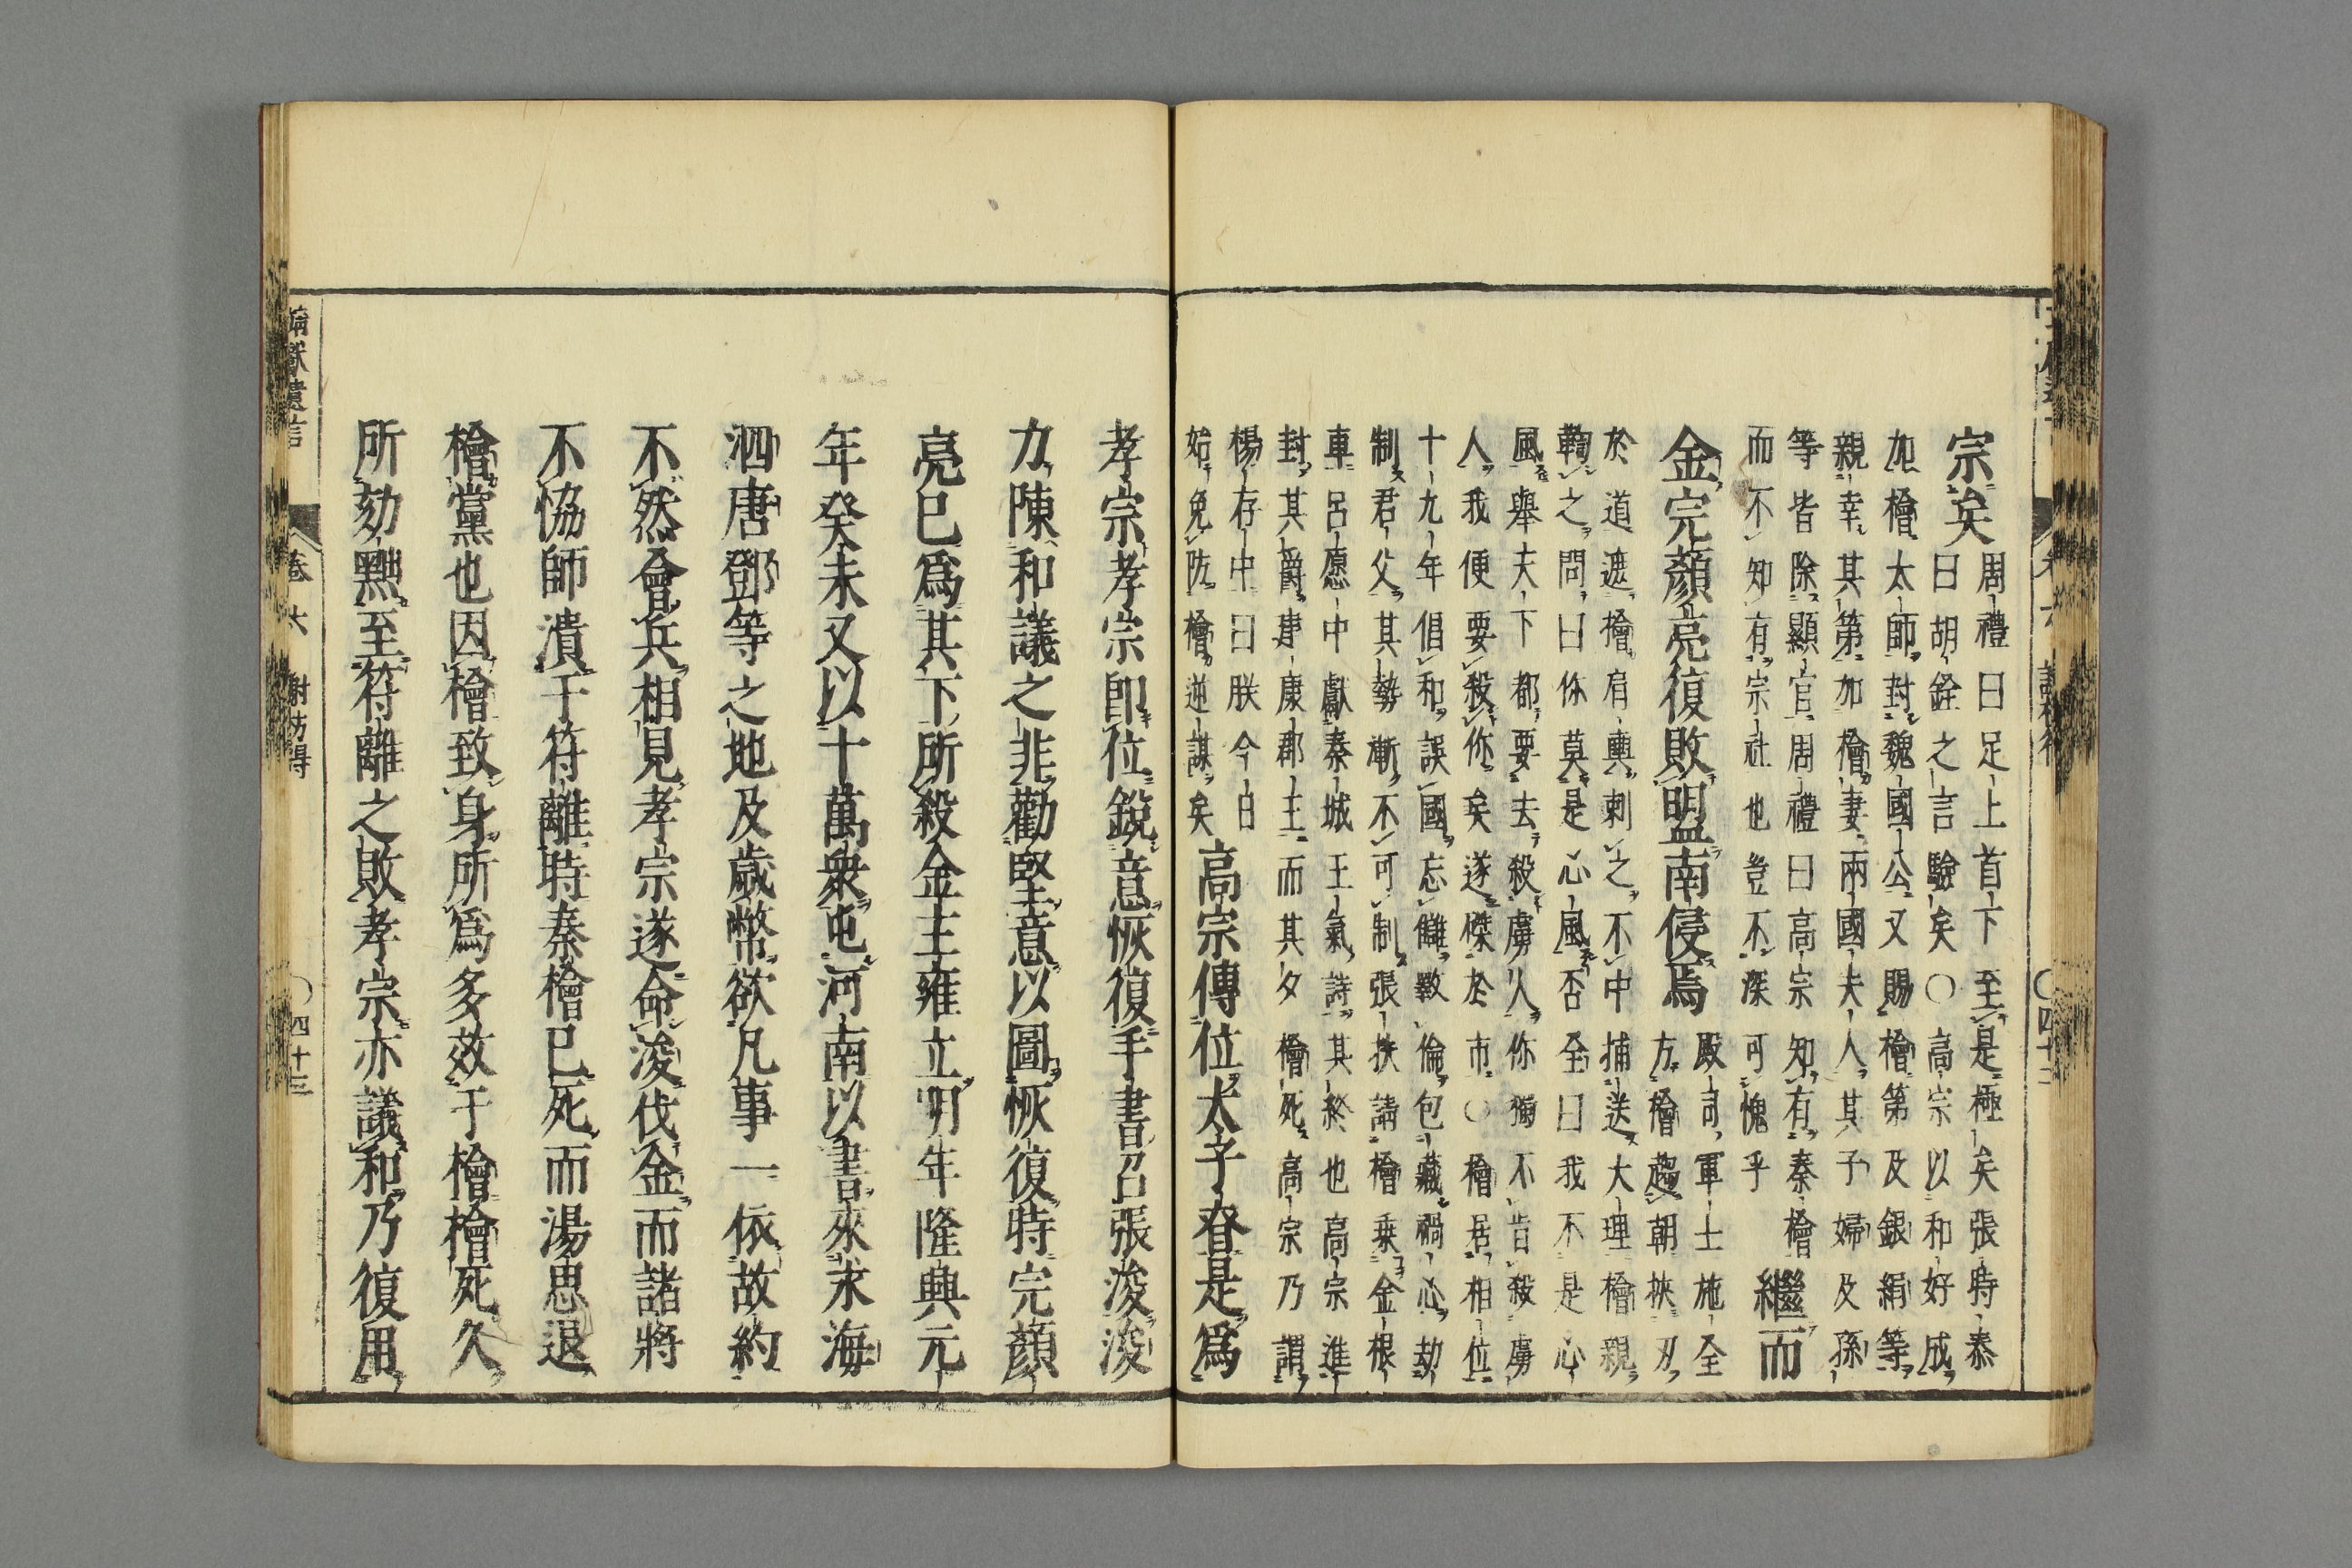 宗矣
周禮曰足上首下至是極矣張時泰
曰胡銓之言驗矣〇高宗以和好成
加檜太師封魏國公又賜檜第及銀絹等
親幸其第加檜妻兩國夫人其子婦及孫
等皆除顯官周禮曰高宗知有秦檜
而不知有宗社也豈不深可愧乎
繼而
金完顏亮復敗盟南侵焉
殿司軍士施全
方檜趨朝挾刃
於道遮檜肩輿刺之不中捕送大理檜親
鞫之問曰你莫是心風否全曰我不是心
風舉天下都要去殺虜人你獨不肯殺虜
人我便要殺你矣遂磔於市〇檜居相位
十九年倡和誤國忘讎斁倫包藏禍心劫
制君父其勢漸不可制張扶請檜乗金根
車呂愿中獻秦城王氣詩其終也高宗進
封其爵建康郡王而其夕檜死高宗乃謂
楊存中曰朕今日
始免防檜逆謀矣
高宗傳位太子眘是爲
孝宗孝宗卽位銳意恢復手書召張浚浚
力陳和議之非勸堅意以圖恢復時完顏
亮已爲其下所殺金主雍立明年隆興元
年癸未又以十萬衆屯河南以書來求海
泗唐鄧等之地及歲幣欲凡事一依故約
不然會兵相見孝宗遂命浚伐金而諸將
不恊師潰于符離時秦檜已死而湯思退
檜黨也因檜致身所爲多效于檜檜死久
所劾黜至符離之敗孝宗亦議和乃復用
獻遺言
卷六
謝枋得
〇四十三